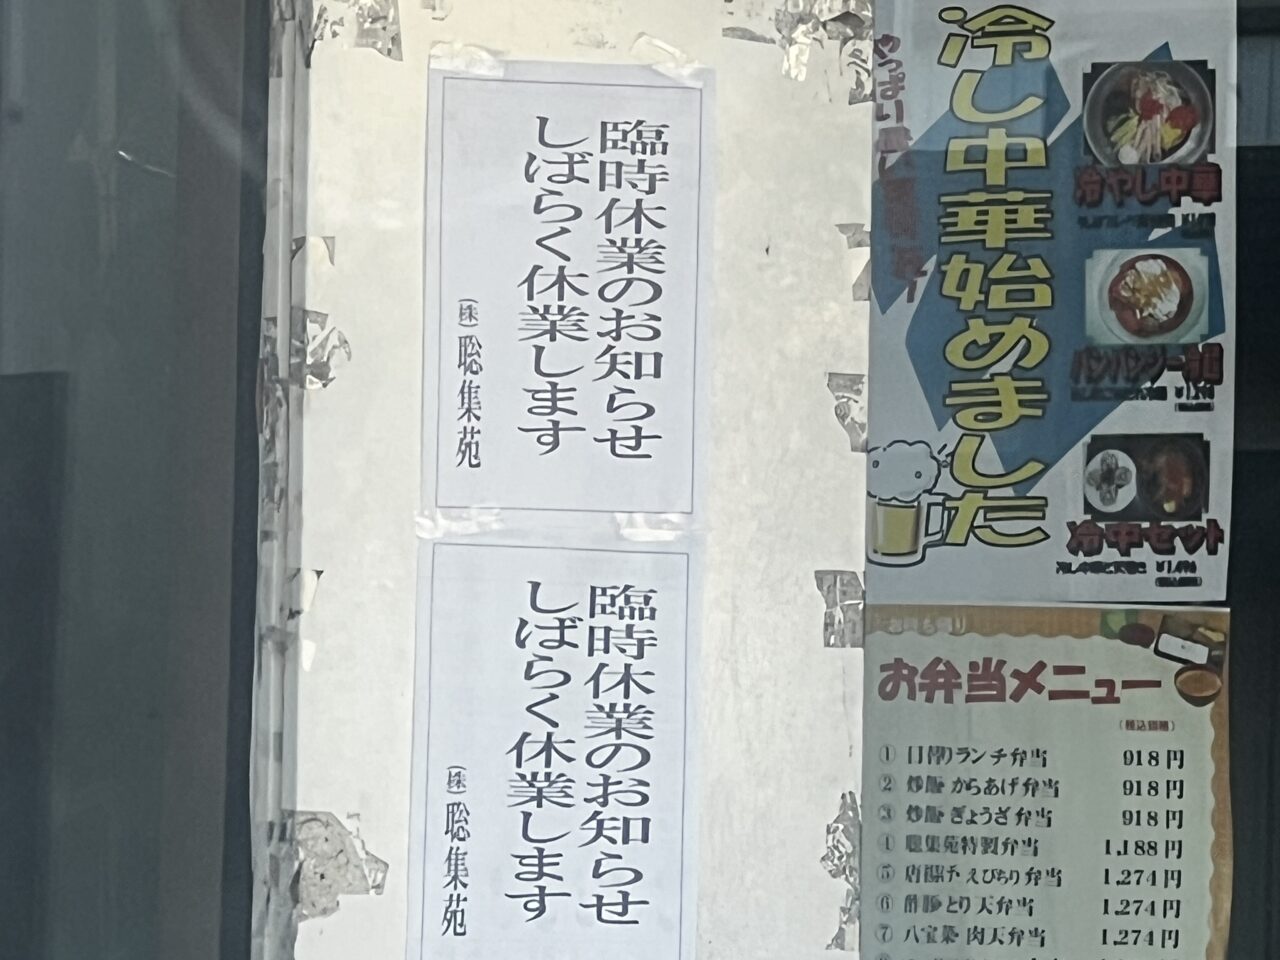 臨時休業のお知らせ
しばらく休業します
(株)聡集苑
臨時休業のお知らせ
しばらく休業します
(株)聡集苑
冷し中華始めました
やっぱり
冷やし中華
バンバンジー冷麺
冷中セット
お弁当メニュー
(税込価格)
① 日替りランチ弁当 918円
② 炒飯 からあげ弁当 918円
③ 炒飯 ぎょうざ弁当 918円
④ 聡集苑特製弁当 1,188円
⑤ 唐揚げ えびちり弁当 1,274円
⑥ 酢豚 とり天弁当 1,274円
⑦ 八宝菜 肉天弁当 1,274円